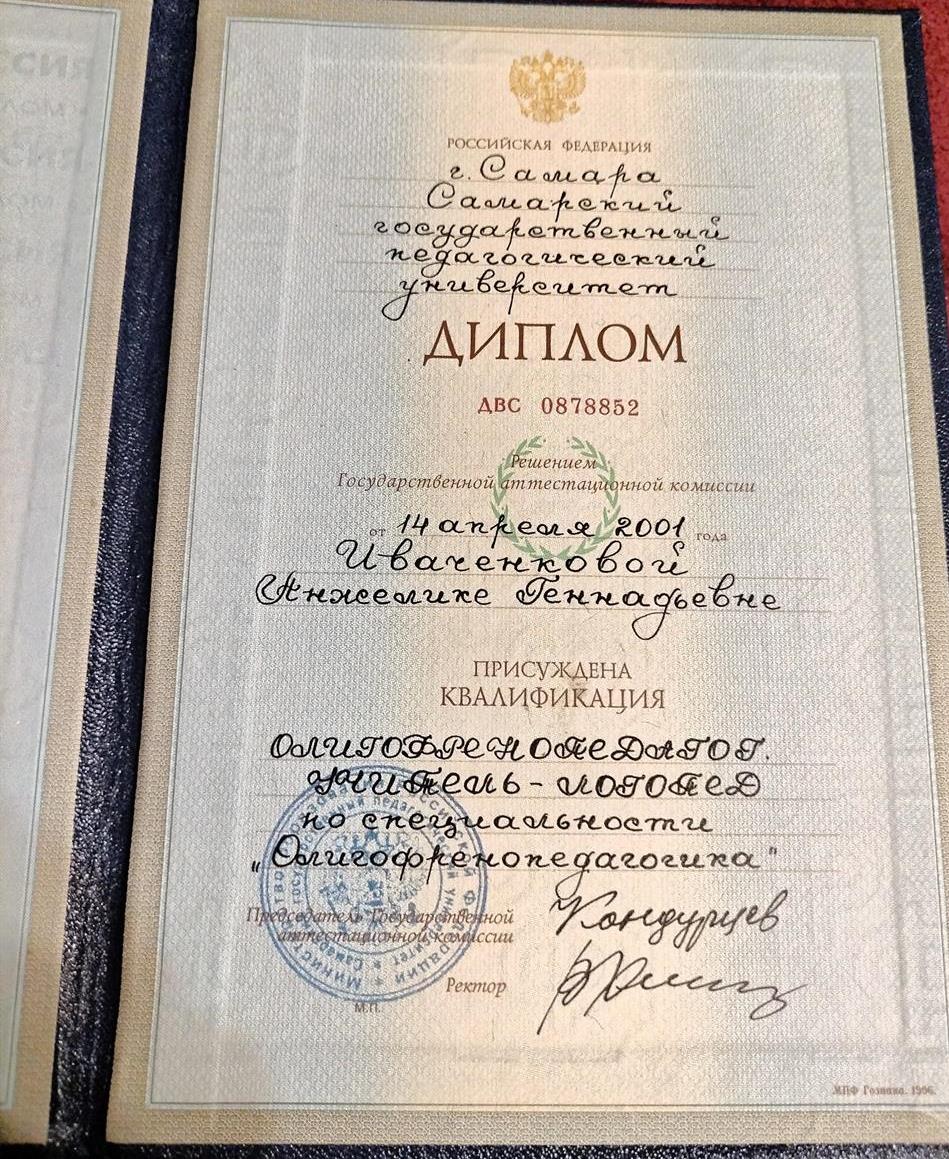 РОССИЙСКАЯ ФЕДЕРАЦИЯ
г. Самара
Самарский
государственный
педагогический
университет
ДИПЛОМ
ДВС 0878852
Решением
Государственной аттестационной комиссии
от 14 апреля 2001 года
Иваченковой
Анжелике Геннадьевне
ПРИСУЖДЕНА
КВАЛИФИКАЦИЯ
ОЛИГОФРЕНОПЕДАГОГ.
УЧИТЕЛЬ-ЛОГОПЕД
по специальности
„Олигофренопедагогика"
Председатель Государственной
аттестационной комиссии
Кондурцев
Ректор
М.П.
МПФ Гознака. 1996.